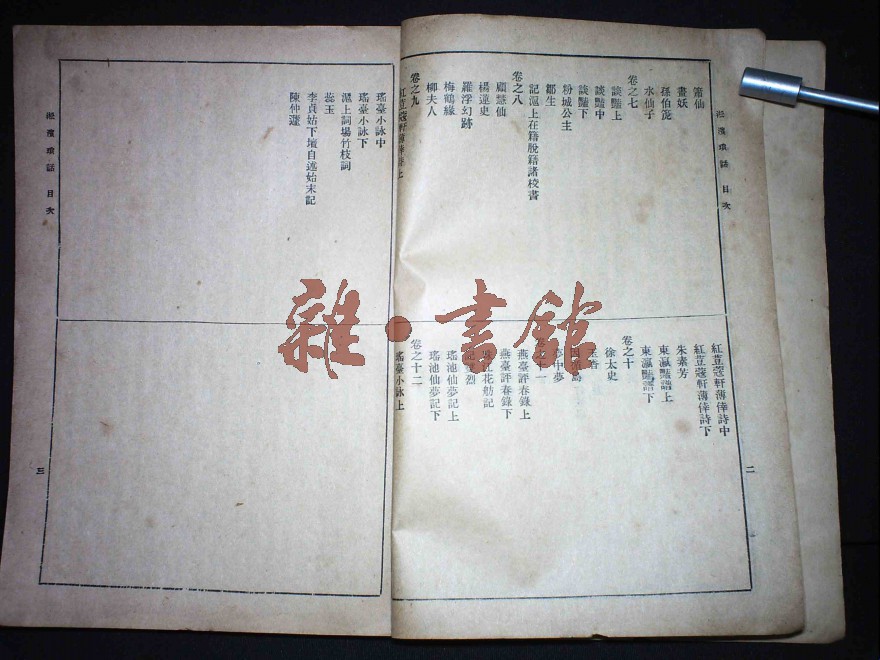 淞濱瑣話 目次
簫仙
畫妖
孫伯篪
水仙子
卷之七
談豔上
談豔中
談豔下
粉城公主
鄒生
記滬上在籍脫籍諸校書
卷之八
顧慧仙
楊蓮史
羅浮幻跡
梅鶴緣
柳夫人
卷之九
紅荳蔻軒薄倖詩上
紅荳蔻軒薄倖詩中
紅荳蔻軒薄倖詩下
朱素芳
東瀛豔譜上
東瀛豔譜下
卷之十
徐太史
中夢
燕臺評春錄上
燕臺評春錄下
江花舫記
烈
瑤池仙夢記上
瑤池仙夢記下
卷之十二
瑤臺小詠上
二
瑤臺小詠中
瑤臺小詠下
滬上詞場竹枝詞
蕊玉
李貞姑下壇自述始末記
陳仲蘧
淞濱瑣話 目次
三
雜·書館